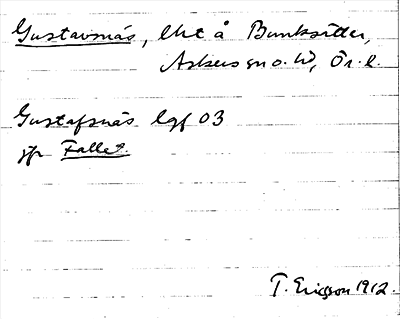 Gustavsnäs, lht å Bunksätter,
Askers sn o. hd, Ör. l.
Gustafsnäs lgf 03
jfr Fallet.
T. Ericsson 1912.